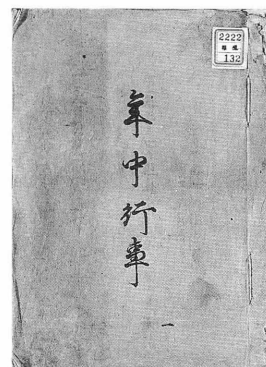 2222
132
年中行事
一